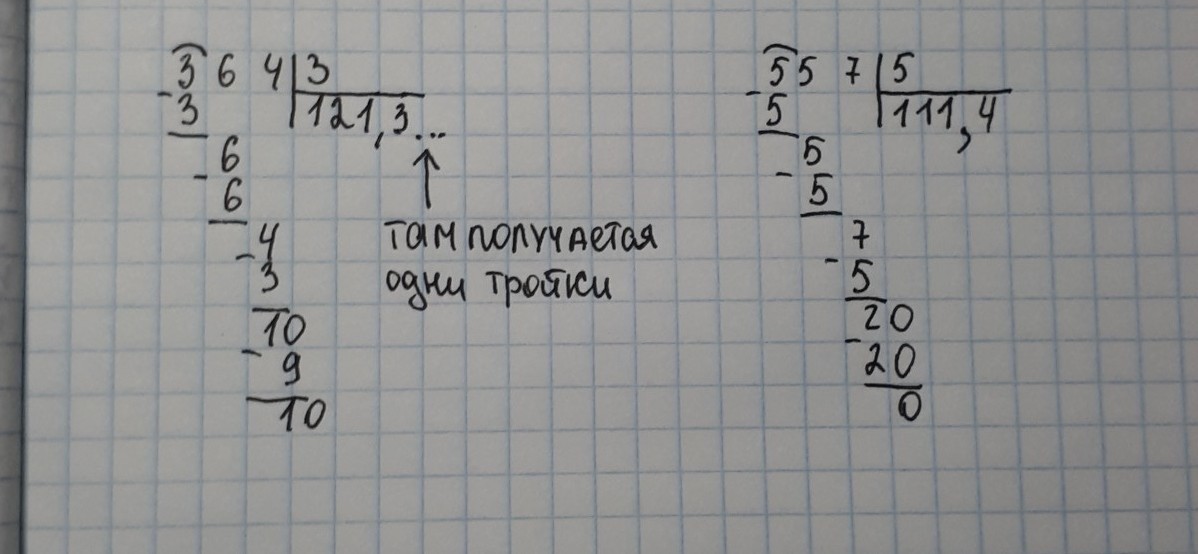 364|3
-3 121,3...
6
-6
4
-3
10
-9
10
там получается
одни тройки
557|5
-5 111,4
5
-5
7
-5
20
-20
0